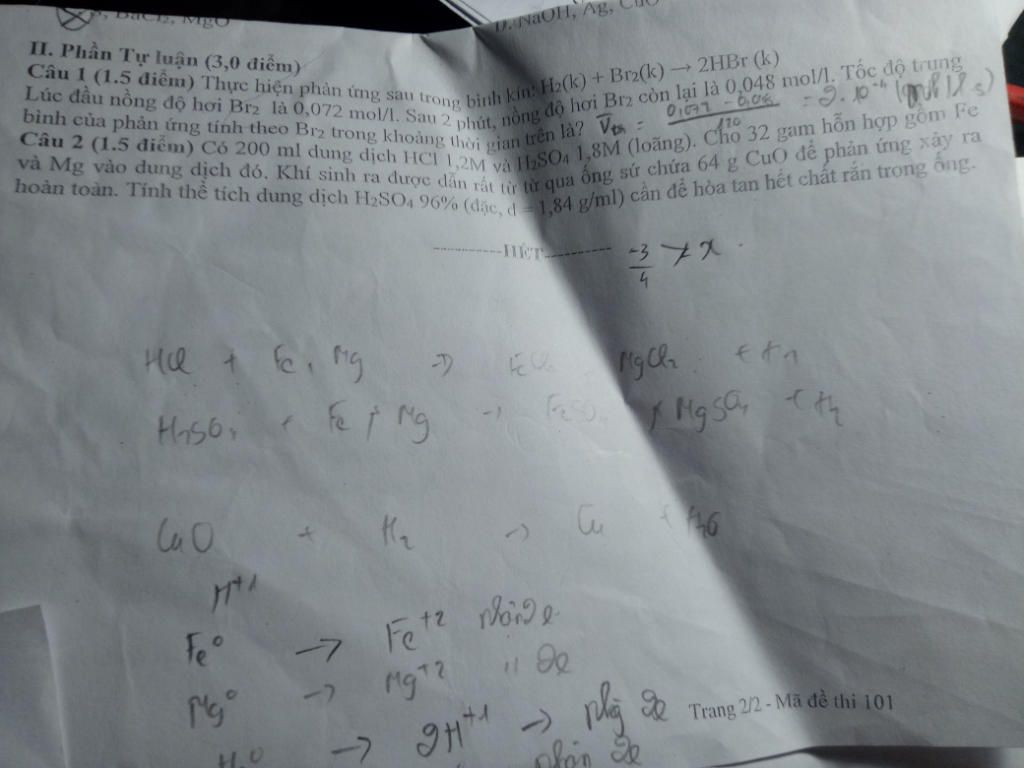 BaCl₂, MgO
D. NaOH, Ag, CuO
II. Phần Tự luận (3,0 điểm)
Câu 1 (1.5 điểm) Thực hiện phản ứng sau trong bình kín: H₂(k) + Br₂(k) → 2HBr (k)
Lúc đầu nồng độ hơi Br₂ là 0,072 mol/l. Sau 2 phút, nồng độ hơi Br₂ còn lại là 0,048 mol/l. Tốc độ trung
bình của phản ứng tính theo Br₂ trong khoảng thời gian trên là?
Câu 2 (1.5 điểm) Có 200 ml dung dịch HCl 1,2M và H₂SO₄ 1,8M (loãng). Cho 32 gam hỗn hợp gồm Fe
và Mg vào dung dịch đó. Khí sinh ra được dẫn rất từ từ qua ống sứ chứa 64 g CuO để phản ứng xảy ra
hoàn toàn. Tính thể tích dung dịch H₂SO₄ 96% (đặc, d = 1,84 g/ml) cần để hòa tan hết chất rắn trong ống.
HẾT
-3/4 x
HCl + Fe, Mg → MgCl₂ + H₂
H₂SO₄ + Fe, Mg → FeSO₄, MgSO₄ + H₂
CuO + H₂ → Cu + H₂O
H⁺¹
Fe⁰ → Fe⁺² nhận 2e
Mg⁰ → Mg⁺² " 2e
→ 2H⁺¹ → 2e
nhận 2e
Trang 2/2 - Mã đề thi 101